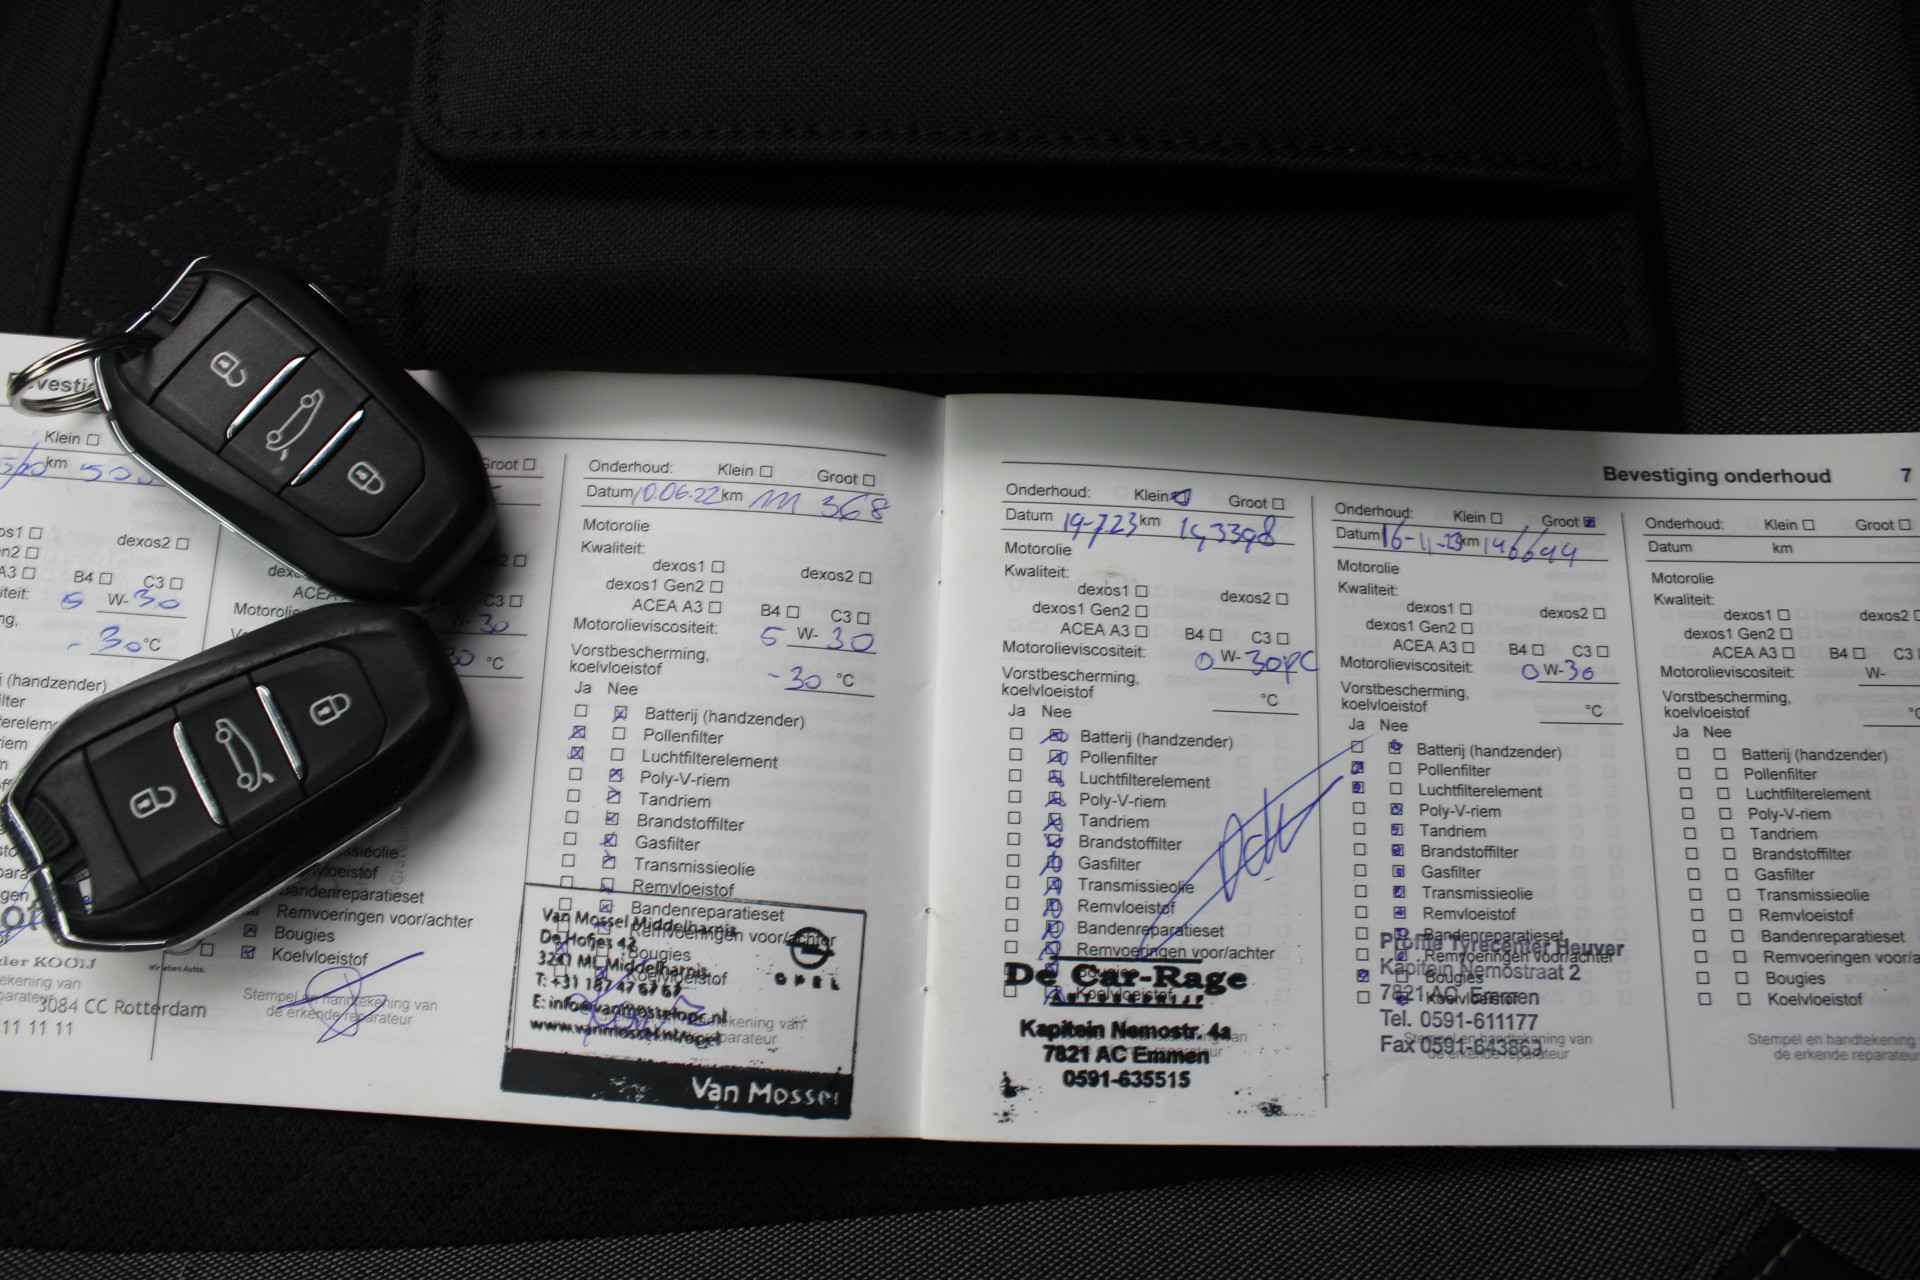 Klein
km
dexos2
B4 C3
W-30
-30 °C
(handzender)
3084 CC Rotterdam
11 11 11
Groot
30
°C
Bandenreparatieset
Remvoeringen voor/achter
Bougies
Koelvloeistof
Stempel en handtekening van
de erkende reparateur
Onderhoud: Klein Groot
Datum 10-06-22 km 111 368
Motorolie
Kwaliteit:
dexos1 dexos2
dexos1 Gen2
ACEA A3 B4 C3
Motorolieviscositeit: 5 W-30
Vorstbescherming,
koelvloeistof -30 °C
Ja Nee
Batterij (handzender)
Pollenfilter
Luchtfilterelement
Poly-V-riem
Tandriem
Brandstoffilter
Gasfilter
Transmissieolie
Remvloeistof
Bandenreparatieset
Remvoeringen voor/achter
Bougies
Koelvloeistof
Van Mossel Middelharnis
De Hofjes 42
3241 ML Middelharnis
T: +31 187 47 67 67
OPEL
Van Mossel
Bevestiging onderhoud 7
Onderhoud: Klein Groot
Datum 19-7-23 km 143398
Motorolie
Kwaliteit:
dexos1 dexos2
dexos1 Gen2
ACEA A3 B4 C3
Motorolieviscositeit: 0 W-30
Vorstbescherming,
koelvloeistof °C
Ja Nee
Batterij (handzender)
Pollenfilter
Luchtfilterelement
Poly-V-riem
Tandriem
Brandstoffilter
Gasfilter
Transmissieolie
Remvloeistof
Bandenreparatieset
Remvoeringen voor/achter
Bougies
Koelvloeistof
De Car-Rage
Kapitein Nemostr. 4a
7821 AC Emmen
0591-635515
Onderhoud: Klein Groot
Datum 16-11-23 km 146644
Motorolie
Kwaliteit:
dexos1 dexos2
dexos1 Gen2
ACEA A3 B4 C3
Motorolieviscositeit: 0 W-30
Vorstbescherming,
koelvloeistof °C
Ja Nee
Batterij (handzender)
Pollenfilter
Luchtfilterelement
Poly-V-riem
Tandriem
Brandstoffilter
Gasfilter
Transmissieolie
Remvloeistof
Bandenreparatieset
Remvoeringen voor/achter
Bougies
Koelvloeistof
Profile Tyrecenter Heuver
Kapitein Nemostraat 2
7821 AC Emmen
Tel. 0591-611177
Fax 0591-643863
Stempel en handtekening van
de erkende reparateur
Onderhoud: Klein Groot
Datum km
Motorolie
Kwaliteit:
dexos1 dexos2
dexos1 Gen2
ACEA A3 B4 C3
Motorolieviscositeit: W-
Vorstbescherming,
koelvloeistof
Ja Nee
Batterij (handzender)
Pollenfilter
Luchtfilterelement
Poly-V-riem
Tandriem
Brandstoffilter
Gasfilter
Transmissieolie
Remvloeistof
Bandenreparatieset
Remvoeringen
Bougies
Koelvloeistof
Stempel en handtekening
de erkende reparateur